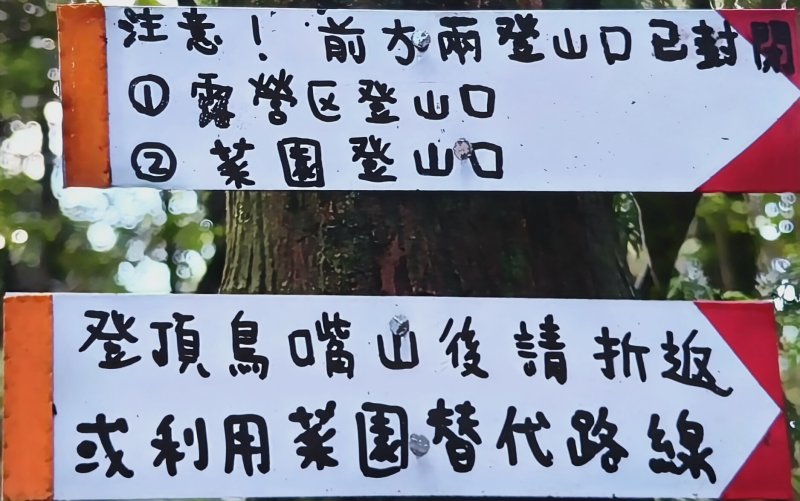 注意! 前方兩登山口已封閉
① 露營区登山口
② 菜園登山口
登頂鳥嘴山後請折返
或利用菜園替代路線